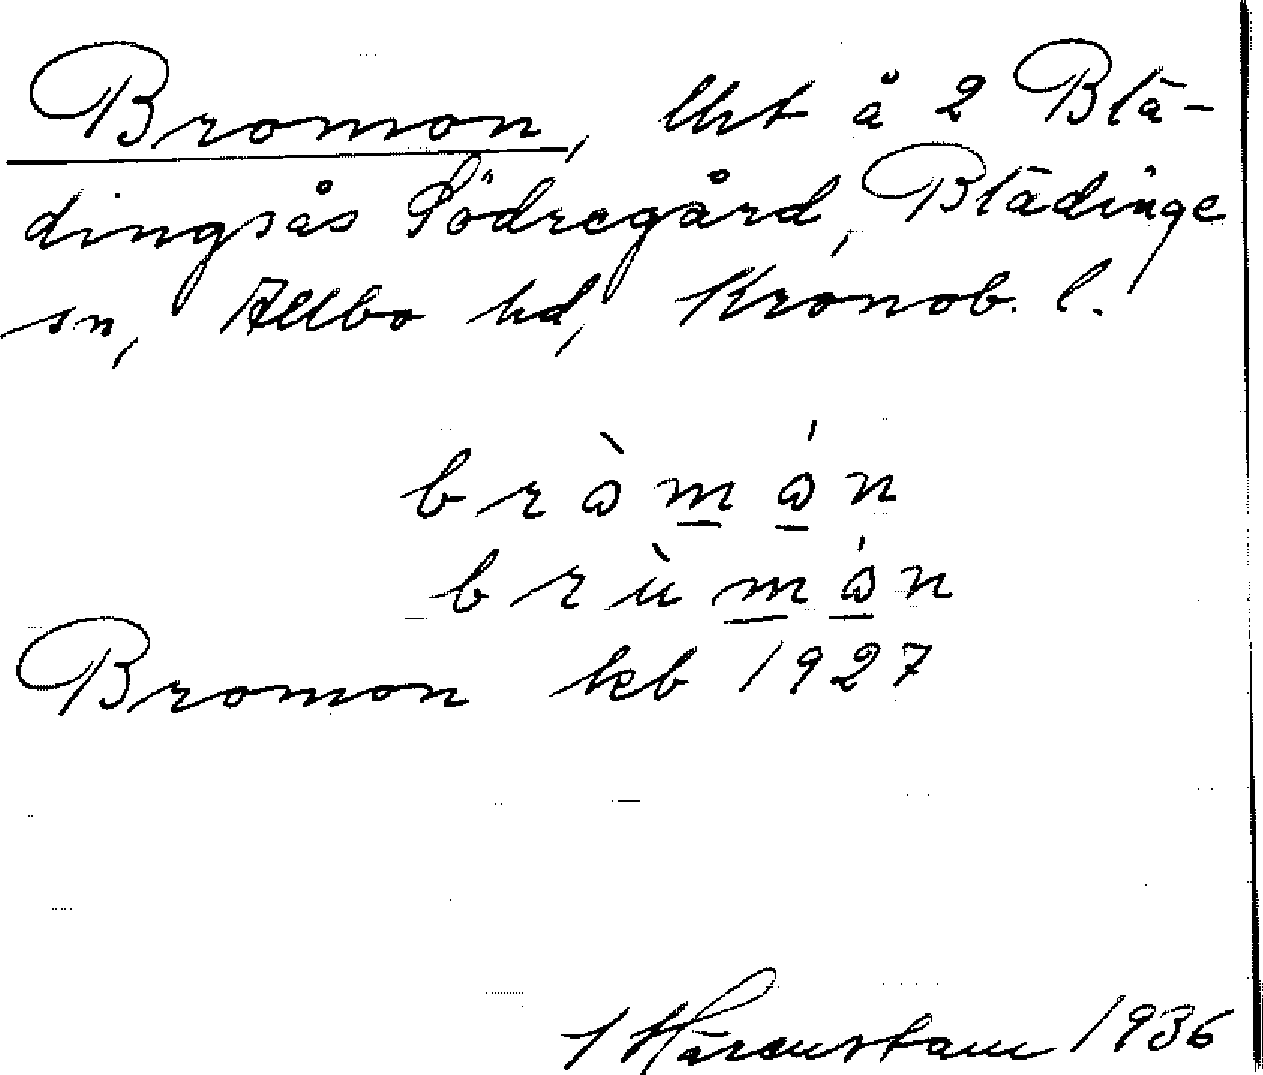 Bromon, lht å 2 Blä-
dingsås Södregård, Blädinge
sn, Allbo hd, Kronob. l.
bròmón
brùmón
Bromon kb 1927
Härenstam 1936